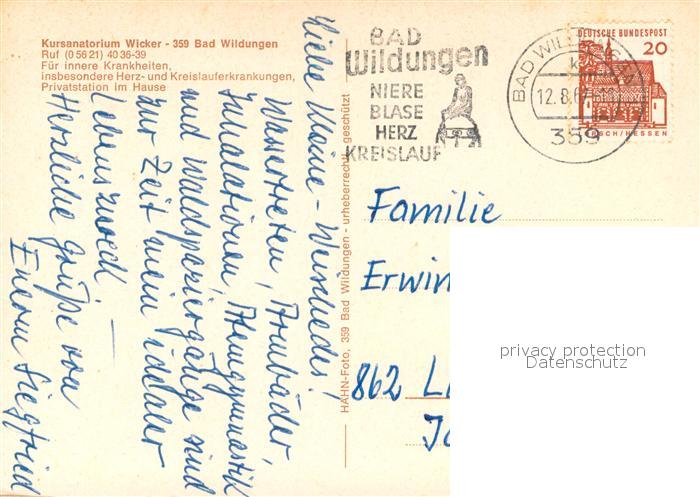 Kursanatorium Wicker - 359 Bad Wildungen
Ruf (0 56 21) 40 36-39
Für innere Krankheiten,
insbesondere Herz- und Kreislauferkrankungen,
Privatstation im Hause
Liebe Kleine-Weischedes!
Wassertreten, Armbäder,
Inhalationen, Atemgymnastik
und Waldspaziergänge sind
zur Zeit mein idealer
Lebenszweck —
Herzliche Grüße von
Euerm Siegfried
HAHN-Foto, 359 Bad Wildungen - urheberrechtl. geschützt
BAD
Wildungen
NIERE
BLASE
HERZ
KREISLAUF
BAD WIL
12.8.6
359
DEUTSCHE BUNDESPOST
20
LORSCH/HESSEN
Familie
Erwin
862 Li
privacy protection
Datenschutz